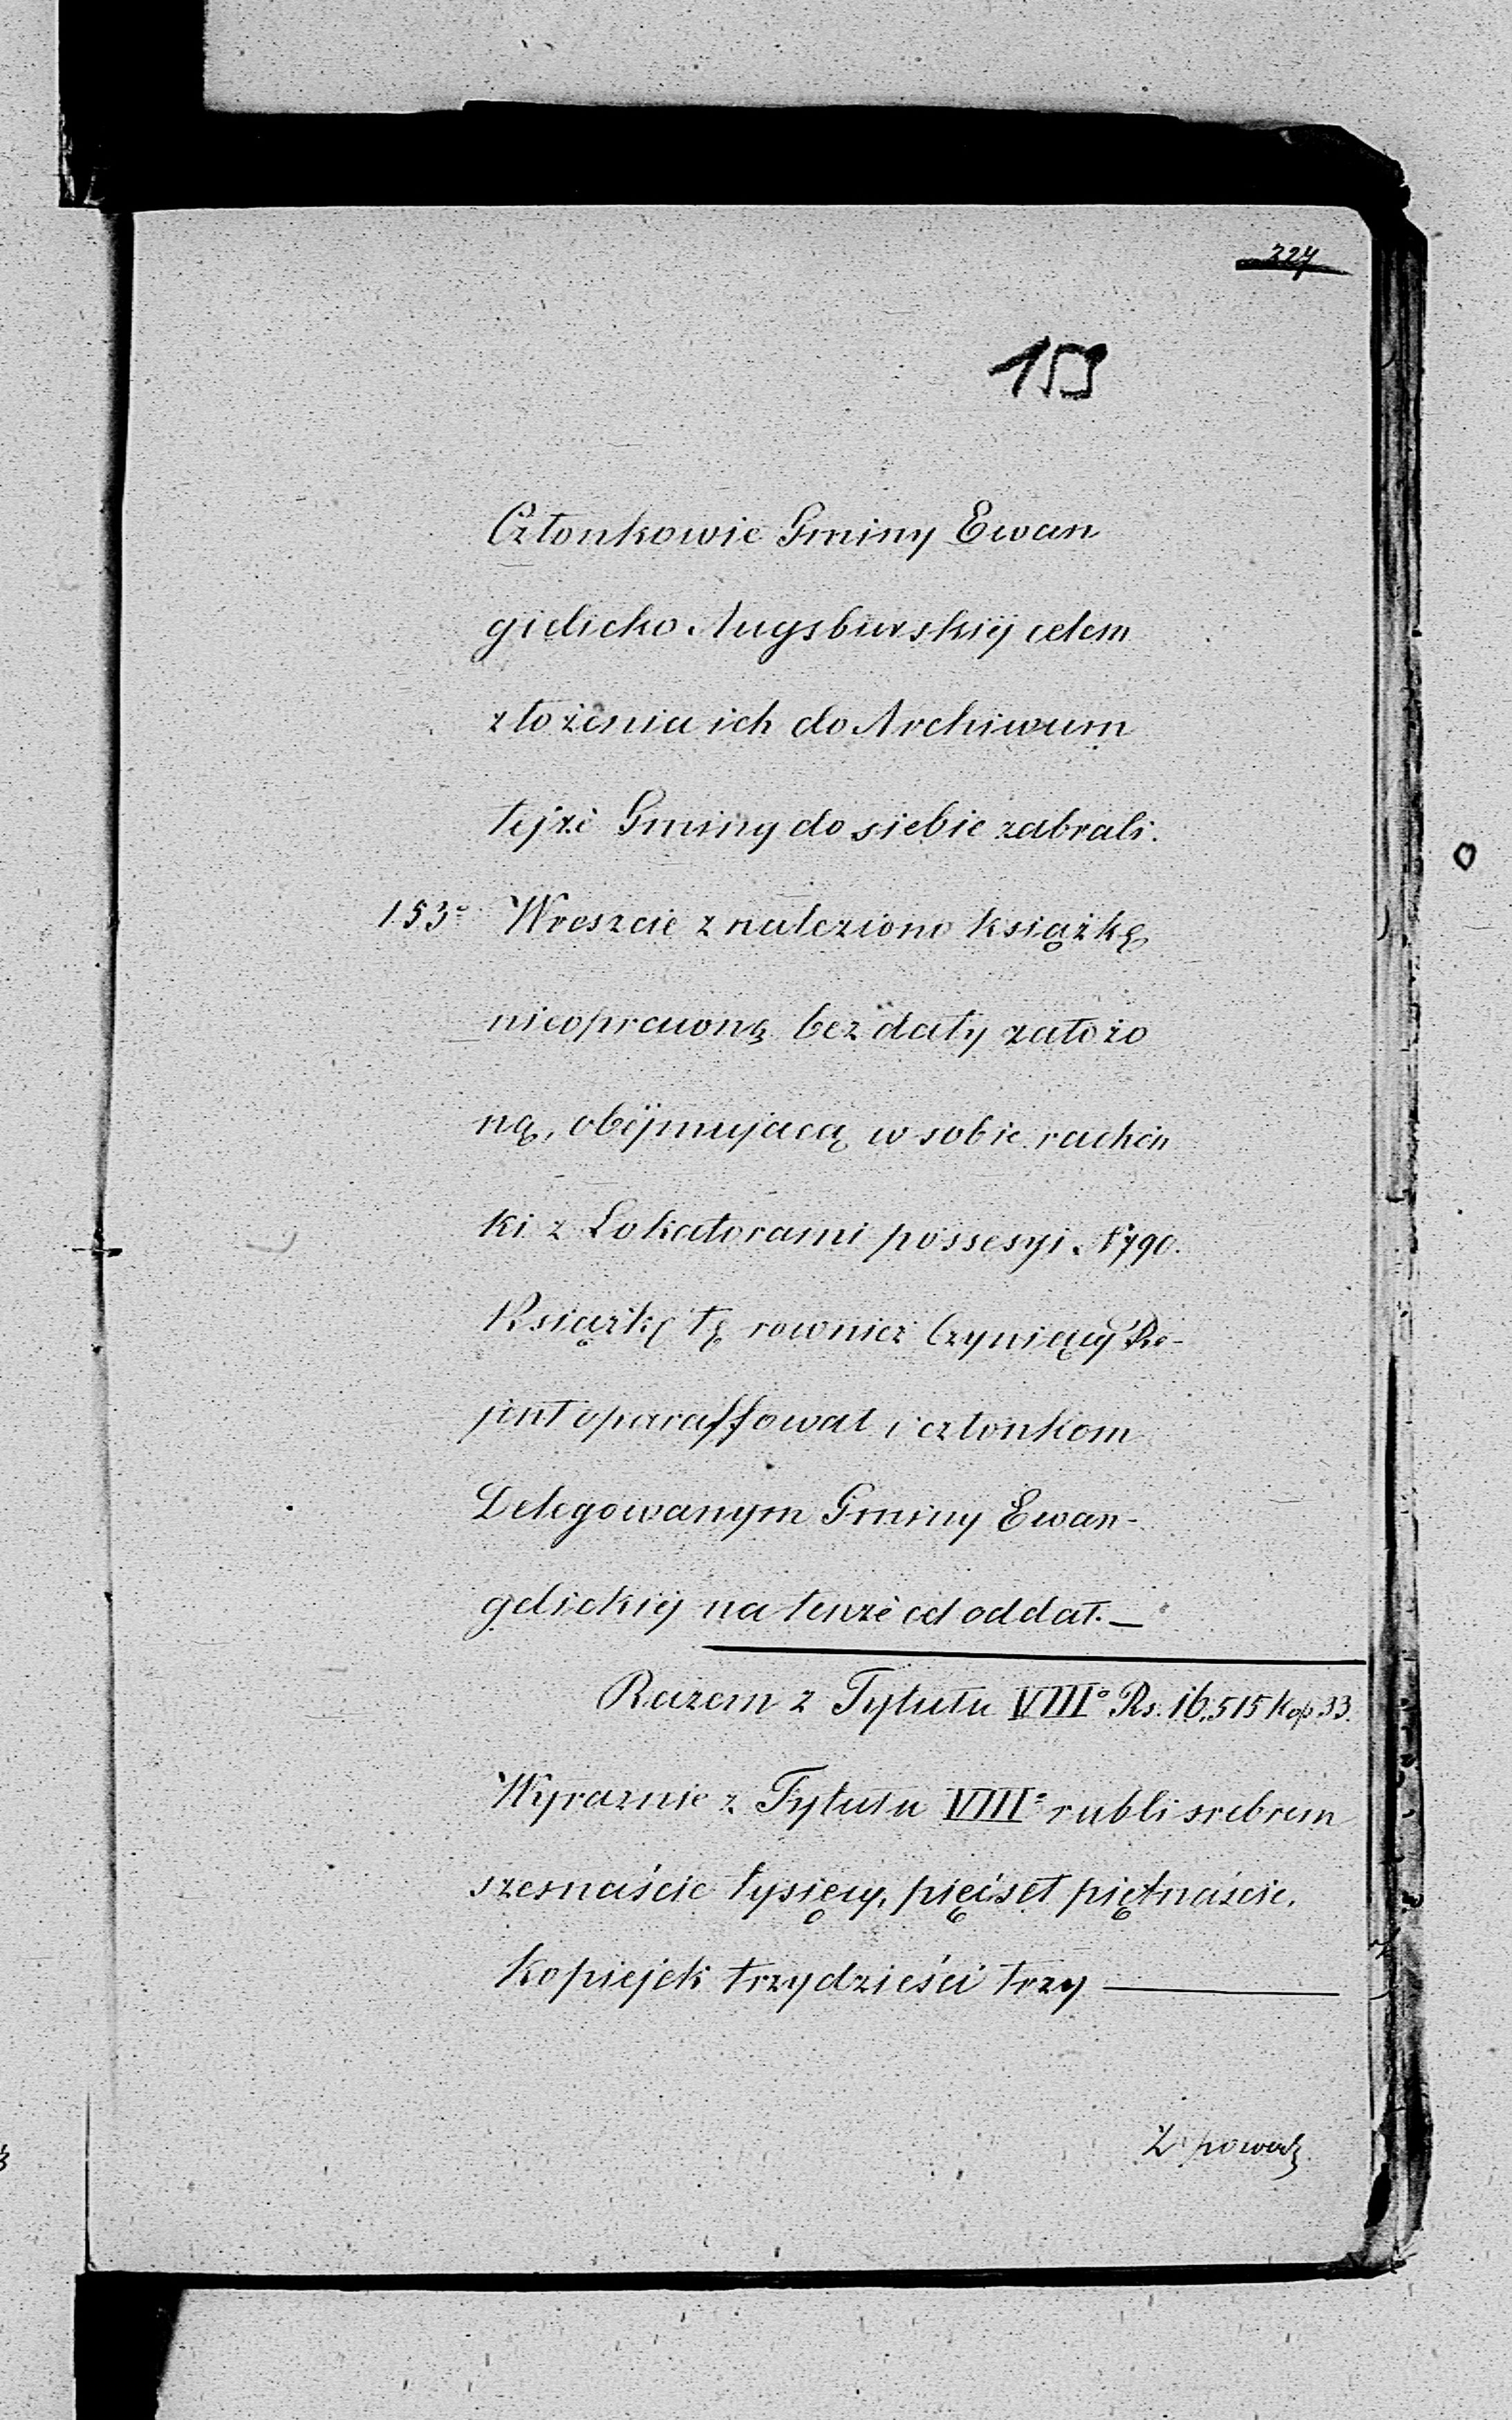 227
159
Członkowie Gminy Ewan
gielicko Augsburskiej celem
złożenia ich do Archiwum
tejże Gminy do siebie zabrali.
153° Wreszcie znaleziono książkę
nieoprawną bez daty założo
ną, obejmującą w sobie rachón
ki z Lokatorami possesyi N 790.
Książkę tę rownież Czyniący Re-
jent oparaffował i członkom
Delegowanym Gminy Ewan-
gelickiej na tenże cel oddał. —
Razem z Tytułu VIII° Rs. 16,515 kop 33.
Wyraznie z Tytułu VIII° rubli srebrem
szesnaście tysięcy, pięćset piętnaście,
kopiejek trzydzieści trzy —
Z powodu